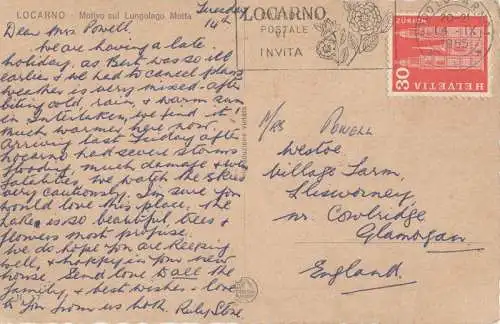 LOCARNO - Motivo sul Lungolago Motta
Tuesday
14th
Dear Mrs Powell.
We are having a late
holiday, as Bert was so ill
earlier & we had to cancel plans
weather is very mixed - after
biting cold, rain, & warm sun
in Interlaken, we find it
much warmer here now.
Arriving last Friday after
Locarno had severe storms
flooding, much damage &
fatalities. We watch the skies
very cautiously. I'm sure you
would love this place. The
Lake is so beautiful, trees &
flowers most profuse.
We do hope you are keeping
well, & happy in your new
house. Send love to all the
family, & best wishes - love
to you from us both. Ruby Stone.
LOCARNO
POSTALE
INVITA
ZÜRICH
30
HELVETIA
M/RS POWELL
Westoe
Village Farm,
Llysworney
nr. Cowbridge
Glamorgan
England.